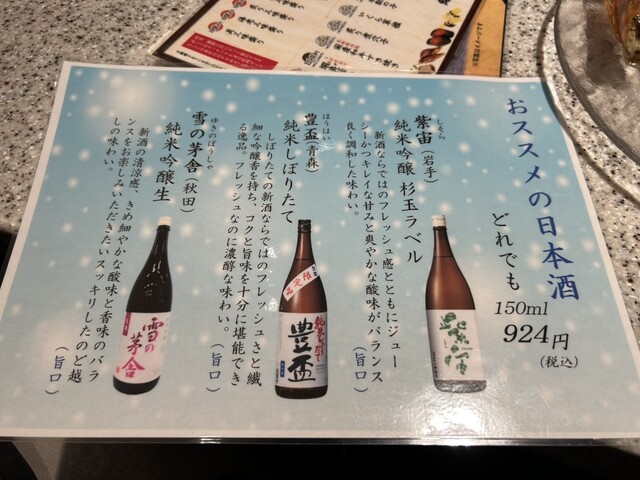 おススメの日本酒
どれでも
150ml
924円
(税込)
しそら
紫宙(岩手)
純米吟醸 杉玉ラベル
新酒ならではのフレッシュ感とともにジュー
シーかつキレイな甘みと爽やかな酸味がバランス
良く調和した味わい。
(旨口)
ほうはい
豊盃(青森)
純米しぼりたて
しぼりたての新酒ならではのフレッシュさと繊
細な吟醸香を持ち、コクと旨味を十分に堪能でき
る逸品。フレッシュなのに濃醇な味わい。
(旨口)
ゆきのぼうしゃ
雪の茅舎(秋田)
純米吟醸生
新酒の清涼感、きめ細やかな酸味と香味のバラ
ンスをお楽しみいただきたいスッキリしたのど越
しの味わい。
(旨口)
豊盃
雪の
茅舎